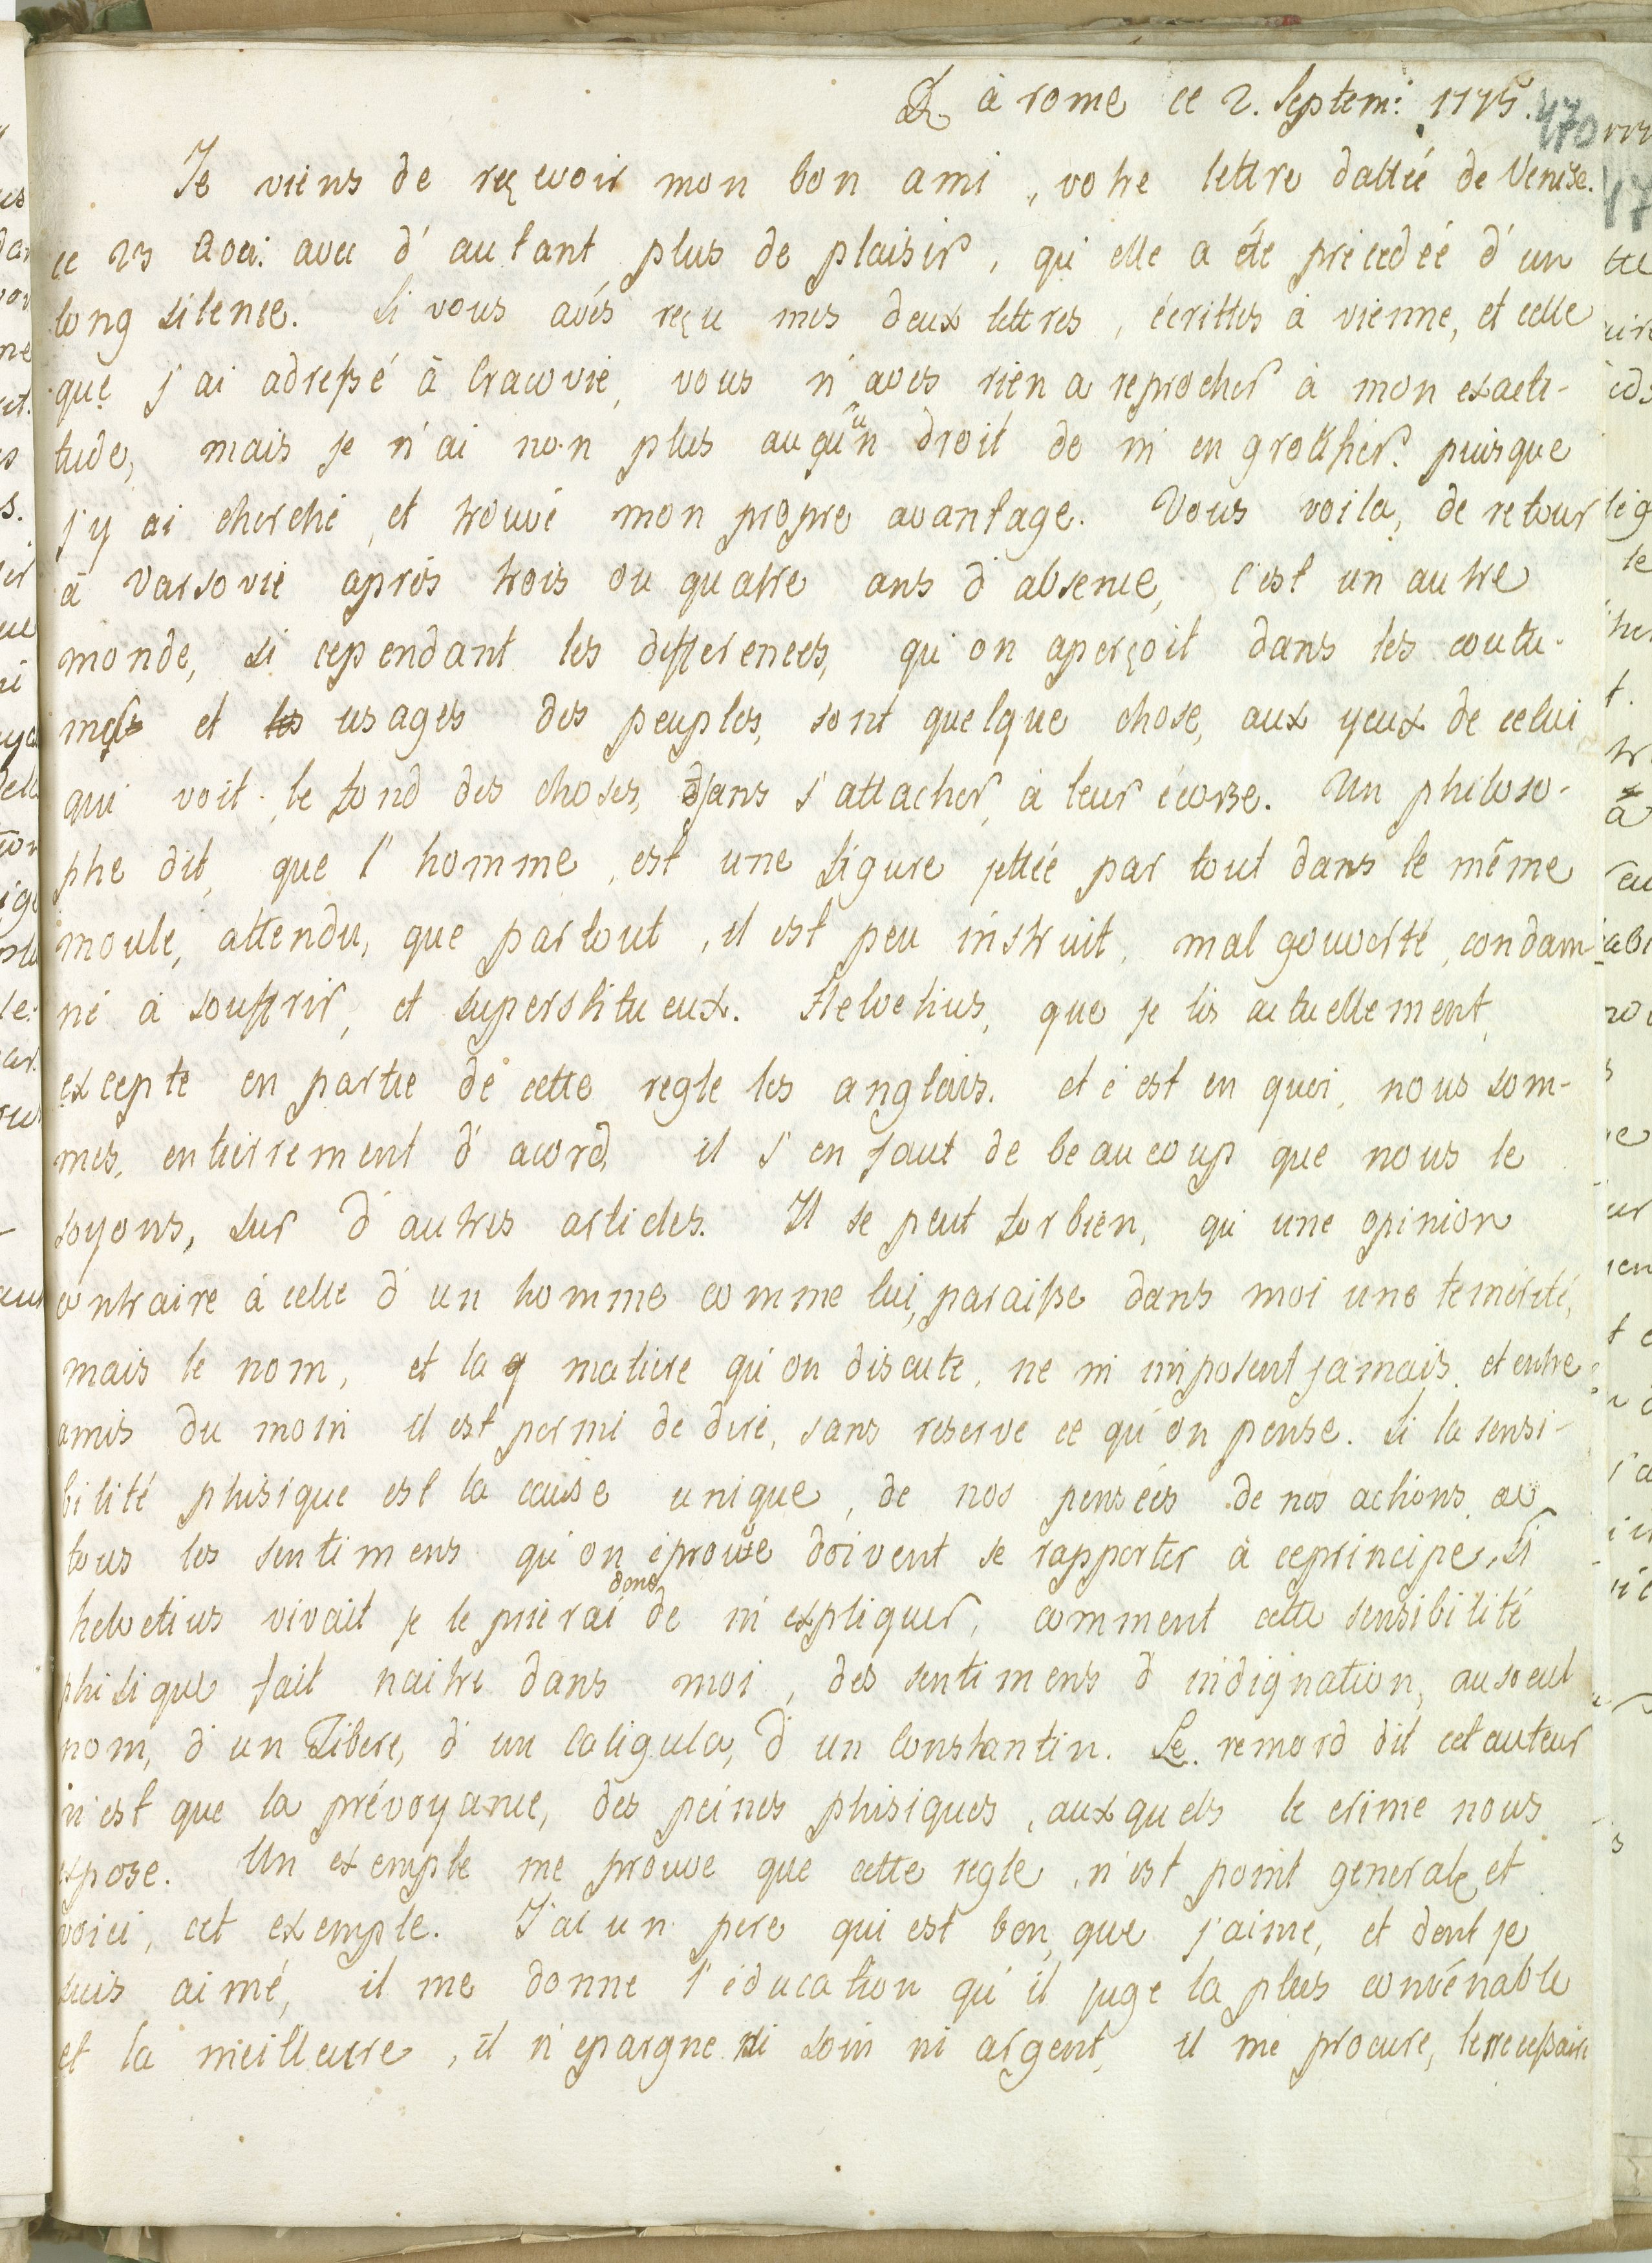 R. à rome ce 2. Septem: 1775.
470
Je viens de reçevoir mon bon ami, votre lettre dattéé de Venise.
ce 23 Aou: avec d'autant plus de plaisir, qu'elle a été precedéé d'un
long silence. Si vous avés reçu mes deux lettres, écrittes à vienne, et celle
que j'ai adreßé à Cracovie, vous n'avés rien a reprocher à mon exacti-
tude, mais je n'ai non plus auçun droit de m'en
puisque
j'y ai cherché, et trouvé mon propre avantage. Vous voila, de retour
à Varsovie après trois ou quatre ans d'absence, c'est un autre
monde, si cependant les differences, qu'on aperçoit dans les coutu-
mes et les usages des peuples, sont quelque chose, aux yeux de celui
qui voit le fond des choses, sans s'attacher, à leur écorse. Un philoso-
phe dit, que l'homme, est une figure jettéé par tout dans le même
moule, attendu, que partout, il est peu instruit, mal gouverté, condam-
né à souffrir, et superstitueux. Helvetius, que je lis actuellement,
excepte en partie de cette regle les anglais. et c'est en quoi, nous som-
mes, entierrement d'acord, il s'en faut de beaucoup que nous le
soyons, sur d'autres articles. Il se peut forbien, qu'une opinion
contraire à celle d'un homme comme lui, paraiße dans moi une temérité,
mais le nom, et la matiere qu'on discute, ne m'imposent jamais. et entre
amis du moin il est permi de dire, sans reserve ce qu'on pense. Si la sensi-
bilité phisique est la cause unique, de nos penséés de nos actions
tous les sentimens qu'on éprouve doivent se rapporter à ceprincipe, Si
helvetius vivait je le prierai donc de m'expliquer, comment cette sensibilité
phisique fait naitre dans moi, des sentimens d'indignation, auseul
nom, d'un Tibere, d'un Caligula, d'un Constantin. Le remord dit cet auteur
n'est que la prévoyance, des peines phisiques, auxquels le crime nous
expose. Un exemple me prouve que cette regle, n'est point generale et
voici, cet exemple. J'ai un pere qui est bon, que j'aime, et dont je
suis aimé, il me donne l'éducation qu'il juge la plus convénable
et la meilleure, il n'epargne ni soin ni argent, il me procure, lenecessaire